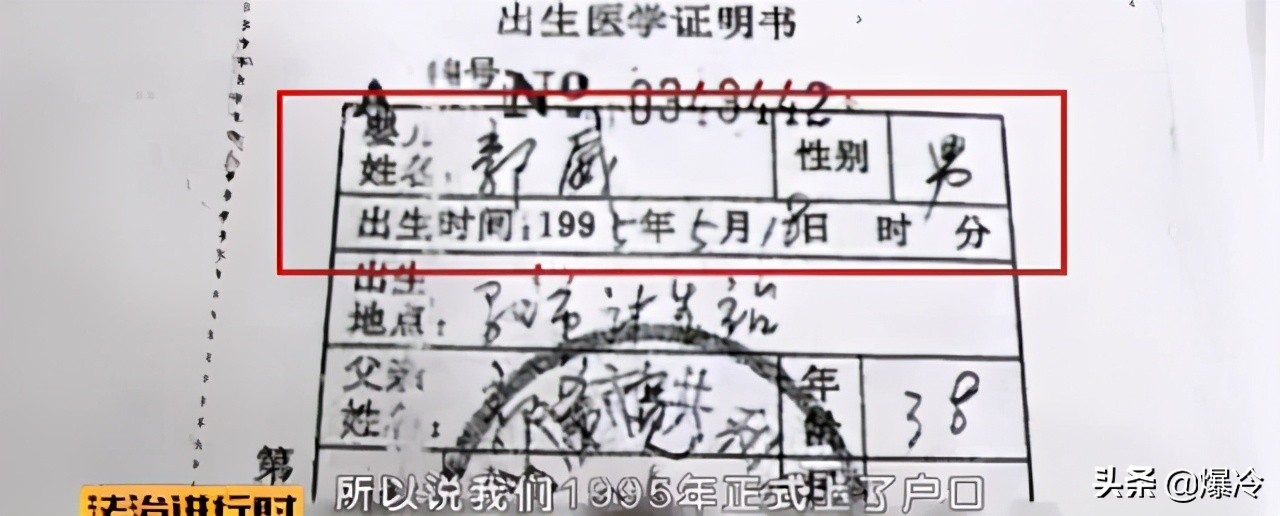 出生医学证明书
编号 No 0343442
婴儿
姓名: 郭威 性别 男
出生时间:1995年5月18日 时 分
出生
地点:
父亲 年
姓名: 龄 38
第
所以说我们1995年正式上了户口
法治进行时
头条 @爆冷